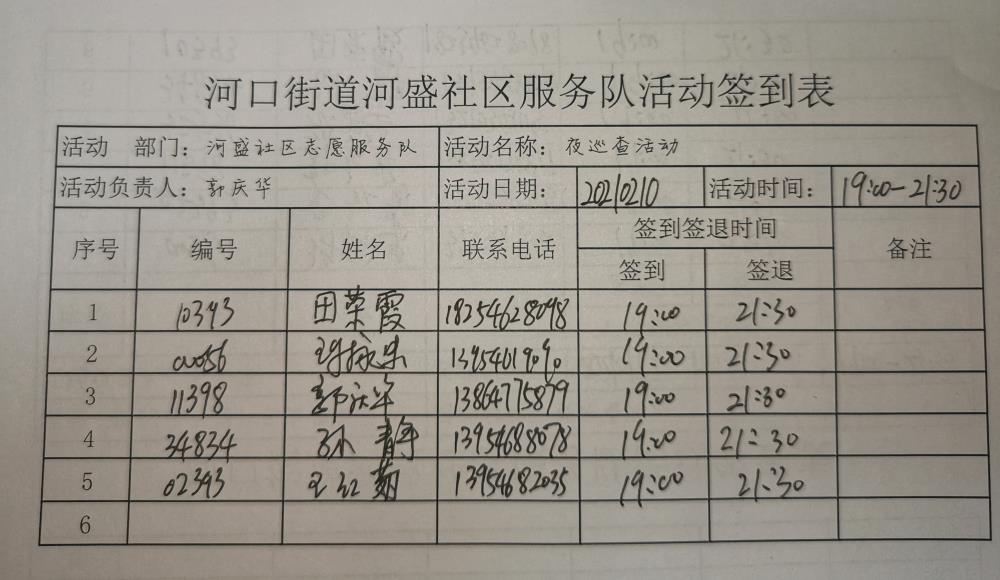 河口街道河盛社区服务队活动签到表
活动 部门：河盛社区志愿服务队 活动名称：夜巡查活动
活动负责人：郭庆华 活动日期：20210210 活动时间：19:00-21:30
序号 编号 姓名 联系电话 签到签退时间 备注
签到 签退
1 10393 田荣霞 18254628098 19:00 21:30
2 00056 19:00 21:30
3 11398 郭庆华 13864775879 19:00 21:30
4 34834 孙静 13954688078 19:00 21:30
5 02393 王红菊 13954682035 19:00 21:30
6